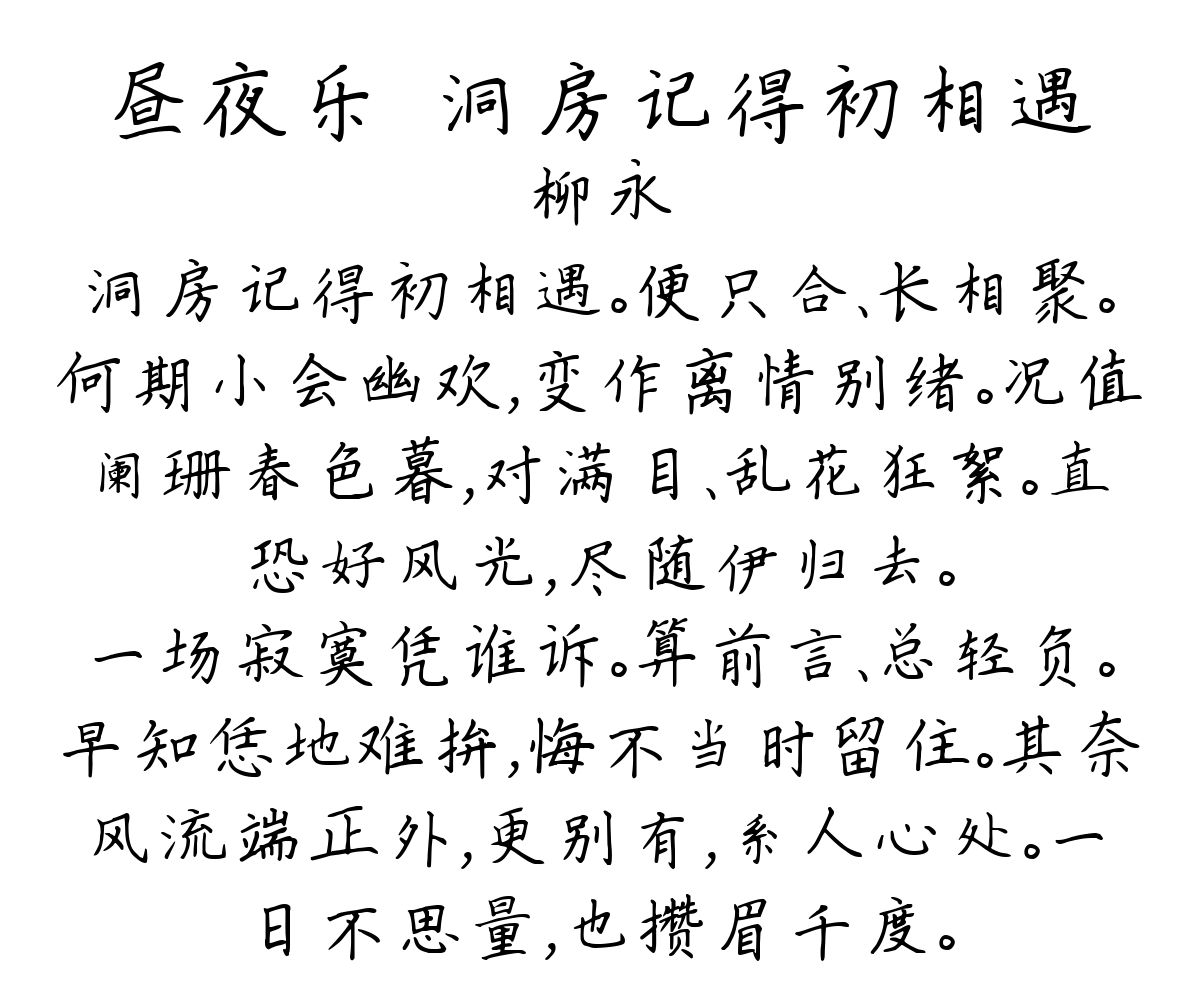 昼夜乐 洞房记得初相遇
柳永
洞房记得初相遇。便只合、长相聚。
何期小会幽欢,变作离情别绪。况值
阑珊春色暮,对满目、乱花狂絮。直
恐好风光,尽随伊归去。
一场寂寞凭谁诉。算前言、总轻负。
早知恁地难拚,悔不当时留住。其奈
风流端正外,更别有,系人心处。一
日不思量,也攒眉千度。